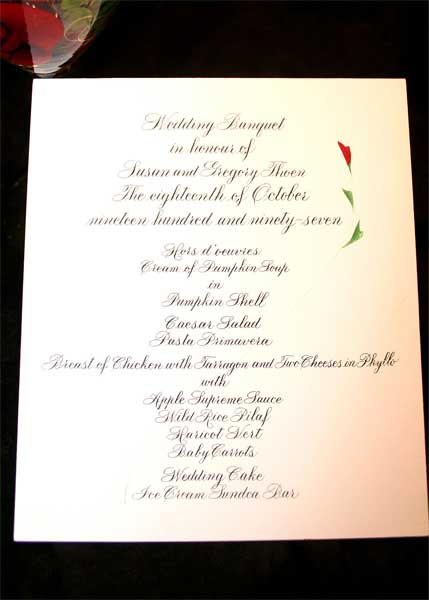 Wedding Banquet
in honour of
Susan and Gregory Thoen
The eighteenth of October
nineteen hundred and ninety-seven
Hors d'oeuvies
Cream of Pumpkin Soup
in
Pumpkin Shell
Caesar Salad
Pasta Primavera
Breast of Chicken with Tarragon and Two Cheeses in Phyllo
with
Apple Supreme Sauce
Wild Rice Pilaf
Haricot Vert
Baby Carrots
Wedding Cake
Ice Cream Sundea Bar